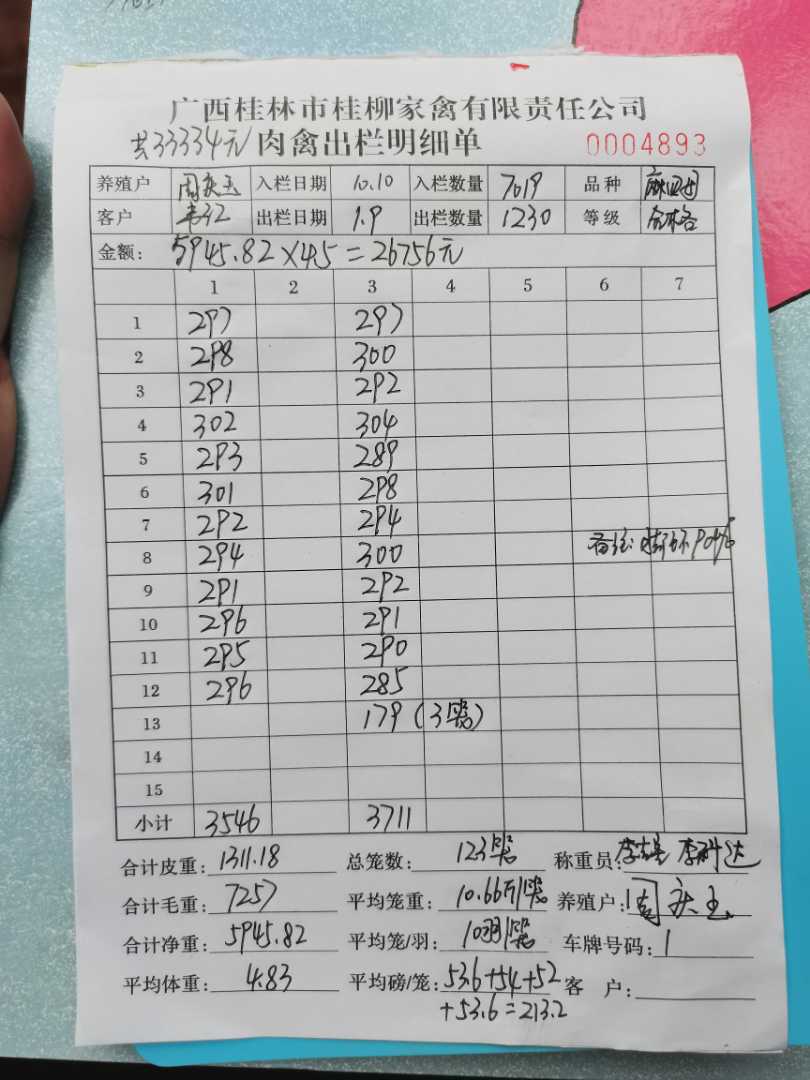 广西桂林市桂柳家禽有限责任公司
共33334元 肉禽出栏明细单 0004893
养殖户 周庆玉 入栏日期 10.10 入栏数量 7019 品种
客户 韦红 出栏日期 1.9 出栏数量 1230 等级 合格
金额: 5945.82×4.5=26756元
1 2 3 4 5 6 7
1 297 297
2 298 300
3 291 292
4 302 304
5 293 289
6 301 298
7 292 294
8 294 300 备注: 90%
9 291 292
10 296 291
11 295 290
12 296 285
13 179(3笼)
14
15
小计 3546 3711
合计皮重: 1311.18 总笼数: 123笼 称重员: 李 李 达
合计毛重: 7257 平均笼重: 10.66斤/笼 养殖户: 周庆玉
合计净重: 5945.82 平均笼/羽: 10羽/笼 车牌号码: 1
平均体重: 4.83 平均磅/笼: 53.6+54+52 客 户:
+53.6=213.2